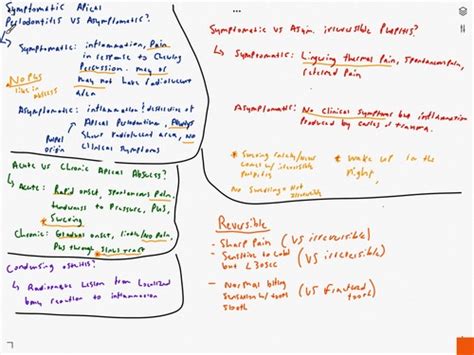 Symptomatic Apical
Periodontitis vs Asymptomatic?
↳ Symptomatic: inflammation, Pain
in response to Chewing
Percussion. may or
may not have radiolucent
area
No Pus
like in abscess
Asymptomatic: inflammation & destruction of
Apical Periodontium, Always
Shows Radiolucent area, No
Clinical Symptoms
Pulpal
origin
Acute vs Chronic Apical Abscess?
↳ Acute: Rapid onset, spontaneous Pain,
tenderness to Pressure, Pus,
Swelling
Chronic: Gradual onset, little/No Pain,
Pus through Sinus tract
Condensing osteitis?
↳ Radiopaque Lesion from Localized
bony reaction to inflammation
Symptomatic vs Asym. irreversible Pulpitis?
↳ Symptomatic: Lingering thermal Pain, Spontaneous Pain,
referred Pain
Asymptomatic: No Clinical Symptoms but inflammation
Produced by caries or trauma.
* Swelling rarely/never
comes w/ irreversible
Pulpitis
No Swelling = Not
irreversible
* Wake up in the
night
Reversible
- Sharp Pain (VS irreversible)
- Sensitive to Cold
but <30sec
(VS irreversible)
- Normal biting
Sensation w/ tooth
Slooth
(VS Fractured
tooth)